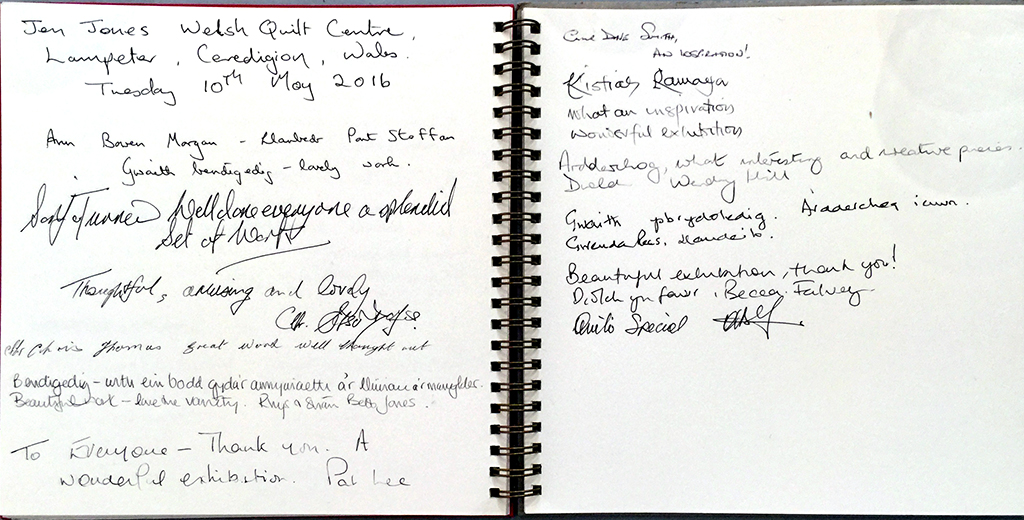 Jen Jones Welsh Quilt Centre,
Lampeter, Ceredigion, Wales.
Tuesday 10th May 2016
Ann Bowen Morgan - Llanbedr Pont Steffan
Gwaith bendigedig - lovely work.
Turner Well done everyone a splendid
Set of Work
Thoughtful, amusing and lovely
Cllr.
Cllr Chris Thomas great work well thought out
Bendigedig - wrth ein bodd gyda'r amrywiaeth a'r lliwiau a'r manylder.
Beautiful work - love the variety. Rhys a Siwan Beth Jones.
To Everyone - Thank you. A
wonderful exhibition. Pat Lee
Dave Smith,
AN INSPIRATION!
Kistiah Ramaya
What an inspiration
wonderful exhibition
Ardderchog, what interesting and creative pieces.
Wendy Hill
Gwaith ysbrydoledig. Ardderchog iawn.
Beautiful exhibition, thank you!
Diolch yn fawr, Becca Falvey
Quite Special